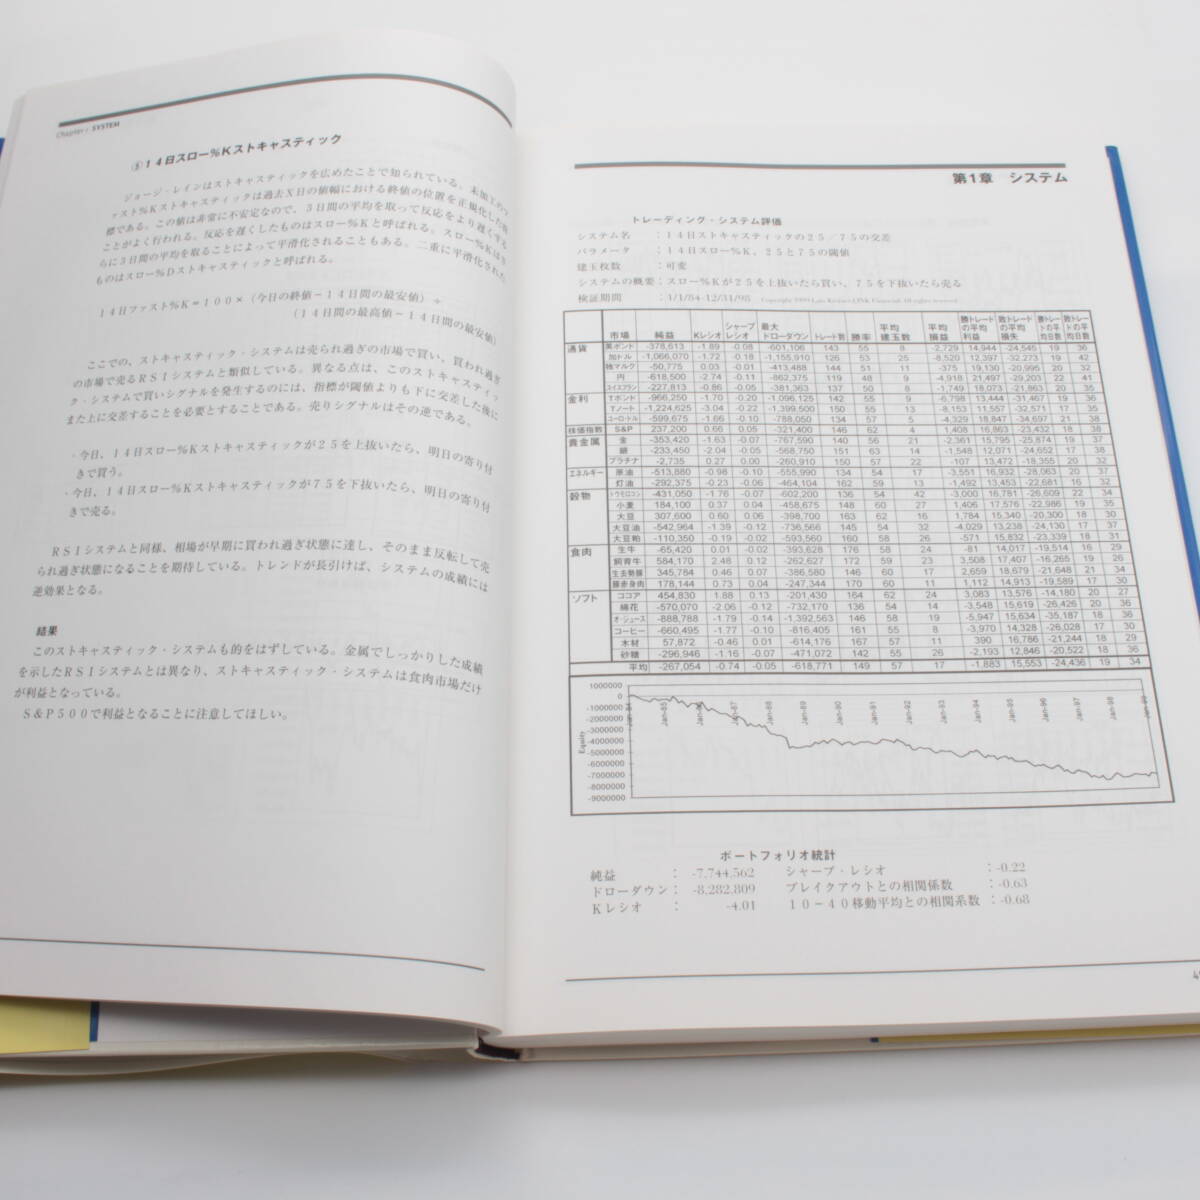 Chapter 1 SYSTEM
⑤14日スロー%Kストキャスティック
ジョージ・レインはストキャスティックを広めたことで知られている。未加工のフ
ァスト%Kストキャスティックは過去X日の値幅における終値の位置を正規化した指
標である。この値は非常に不安定なので、3日間の平均を取って反応をより遅くする
ことがよく行われる。反応を遅くしたものはスロー%Kと呼ばれる。スロー%Kはさ
らに3日間の平均を取ることによって平滑化されることもある。二重に平滑化された
ものはスロー%Dストキャスティックと呼ばれる。
14日ファスト%K=100×(今日の終値-14日間の最安値)÷
(14日間の最高値-14日間の最安値)
ここでの、ストキャスティック・システムは売られ過ぎの市場で買い、買われ過ぎ
の市場で売るRSIシステムと類似している。異なる点は、このストキャスティッ
ク・システムで買いシグナルを発生するのには、指標が閾値よりも下に交差した後に
また上に交差することを必要とすることである。売りシグナルはその逆である。
・今日、14日スロー%Kストキャスティックが25を上抜いたら、明日の寄り付
きで買う。
・今日、14日スロー%Kストキャスティックが75を下抜いたら、明日の寄り付
きで売る。
RSIシステムと同様、相場が早期に買われ過ぎ状態に達し、そのまま反転して売
られ過ぎ状態になることを期待している。トレンドが長引けば、システムの成績には
逆効果となる。
結果
このストキャスティック・システムも的をはずしている。金属でしっかりした成績
を示したRSIシステムとは異なり、ストキャスティック・システムは食肉市場だけ
が利益となっている。
S&P500で利益となることに注意してほしい。
第1章 システム
トレーディング・システム評価
システム名 :14日ストキャスティックの25/75の交差
パラメータ :14日スロー%K、25と75の閾値
建玉枚数 :可変
システムの概要:スロー%Kが25を上抜いたら買い、75を下抜いたら売る
検証期間 :1/1/84-12/31/98 Copyright 1999 Lars Kestner/LINK Financial. All rights reserved
市場 純益 Kレシオ シャープレシオ 最大ドローダウン トレード数 勝率 平均建玉数 平均損益 勝トレードの平均利益 敗トレードの平均損失 勝トレードの平均日数 敗トレードの平均日数
通貨 英ポンド -378,613 -1.89 -0.08 -601,106 143 55 8 -2,729 14,944 -24,545 19 36
加ドル -1,066,070 -1.72 -0.18 -1,155,910 126 53 25 -8,520 12,397 -32,273 19 42
独マルク -50,775 0.03 -0.01 -413,488 144 51 11 -375 19,130 -20,995 20 32
円 -618,500 -2.74 -0.11 -862,375 119 48 9 -4,918 21,497 -29,203 22 41
スイスフラン -227,813 -0.86 -0.05 -381,363 137 50 8 -1,749 18,073 -21,863 20 35
金利 Tボンド -966,250 -1.70 -0.20 -1,096,125 142 55 9 -6,798 13,444 -31,467 19 36
Tノート -1,224,625 -3.04 -0.22 -1,399,500 150 55 13 -8,153 11,557 -32,571 17 35
ユーロ・ドル -599,675 -1.66 -0.10 -788,050 134 57 5 -4,329 18,847 -34,697 21 38
株価指数 S&P 237,200 0.66 0.05 -321,400 146 62 4 1,408 16,863 -23,432 18 38
貴金属 金 -353,420 -1.63 -0.07 -767,590 140 56 21 -2,361 15,795 -25,874 19 37
銀 -233,450 -2.04 -0.05 -568,750 151 63 14 -1,548 12,071 -24,652 17 38
プラチナ -2,735 0.27 0.00 -260,910 150 57 22 -107 13,472 -18,355 20 32
エネルギー 原油 -513,880 -0.98 -0.10 -555,990 134 54 17 -3,551 16,932 -28,063 20 37
灯油 -292,375 -0.23 -0.06 -464,104 162 59 13 -1,492 13,453 -22,681 16 32
穀物 トウモロコシ -431,050 -1.76 -0.07 -602,200 136 54 42 -3,000 16,781 -26,609 22 34
小麦 184,100 0.37 0.04 -458,675 148 60 27 1,406 17,576 -22,986 19 35
大豆 307,600 0.60 0.06 -398,700 163 62 16 1,784 15,340 -20,300 18 30
大豆油 -542,964 -1.39 -0.12 -736,566 145 54 32 -4,029 13,238 -24,130 17 37
大豆粕 -110,350 -0.19 -0.02 -593,560 160 58 26 -571 15,832 -23,339 18 31
食肉 生牛 -65,420 0.01 -0.02 -393,628 176 58 24 -81 14,017 -19,514 16 29
飼育牛 584,170 2.48 0.12 -262,627 172 59 23 3,508 17,407 -16,265 19 26
生去勢豚 345,784 0.46 0.07 -386,580 146 60 17 2,659 18,679 -21,648 21 34
豚赤身肉 178,144 0.73 0.04 -247,344 170 60 11 1,112 14,913 -19,589 17 30
ソフト ココア 454,830 1.88 0.13 -201,430 164 62 24 3,083 13,576 -14,180 20 27
綿花 -570,070 -2.06 -0.12 -732,170 136 54 14 -3,548 15,619 -26,426 20 36
オ・ジュース -888,788 -1.79 -0.14 -1,392,563 146 58 19 -5,947 15,634 -35,187 18 36
コーヒー -660,495 -1.77 -0.10 -816,405 161 55 8 -3,970 14,328 -26,028 17 30
木材 57,872 -0.46 0.01 -614,176 167 57 11 390 16,786 -21,244 18 29
砂糖 -296,946 -1.16 -0.07 -471,072 142 55 26 -2,193 12,846 -20,522 18 36
平均 -267,054 -0.74 -0.05 -618,771 149 57 17 -1,883 15,553 -24,436 19 34
1000000
0
-1000000
-2000000
-3000000
-4000000
-5000000
-6000000
-7000000
-8000000
-9000000
Equity
Jan-84 Jan-85 Jan-86 Jan-87 Jan-88 Jan-89 Jan-90 Jan-91 Jan-92 Jan-93 Jan-94 Jan-95 Jan-96 Jan-97 Jan-98 Jan-99
ポートフォリオ統計
純益 : -7,744,562 シャープ・レシオ :-0.22
ドローダウン: -8,282,809 ブレイクアウトとの相関係数 :-0.63
Kレシオ : -4.01 10-40移動平均との相関係数 :-0.68